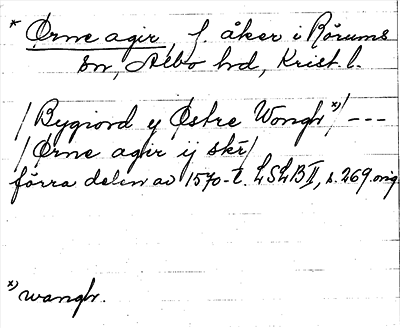 * Ørne agir, f. åker i Rörums
sn, Albo hd, Krist. l.
/Bygiord ÿ Østre Wongh*)/ ---
/Ørne agir ij skr/
förra delen av 1570-t. LSLB II, s. 269. orig.
*) wangh.